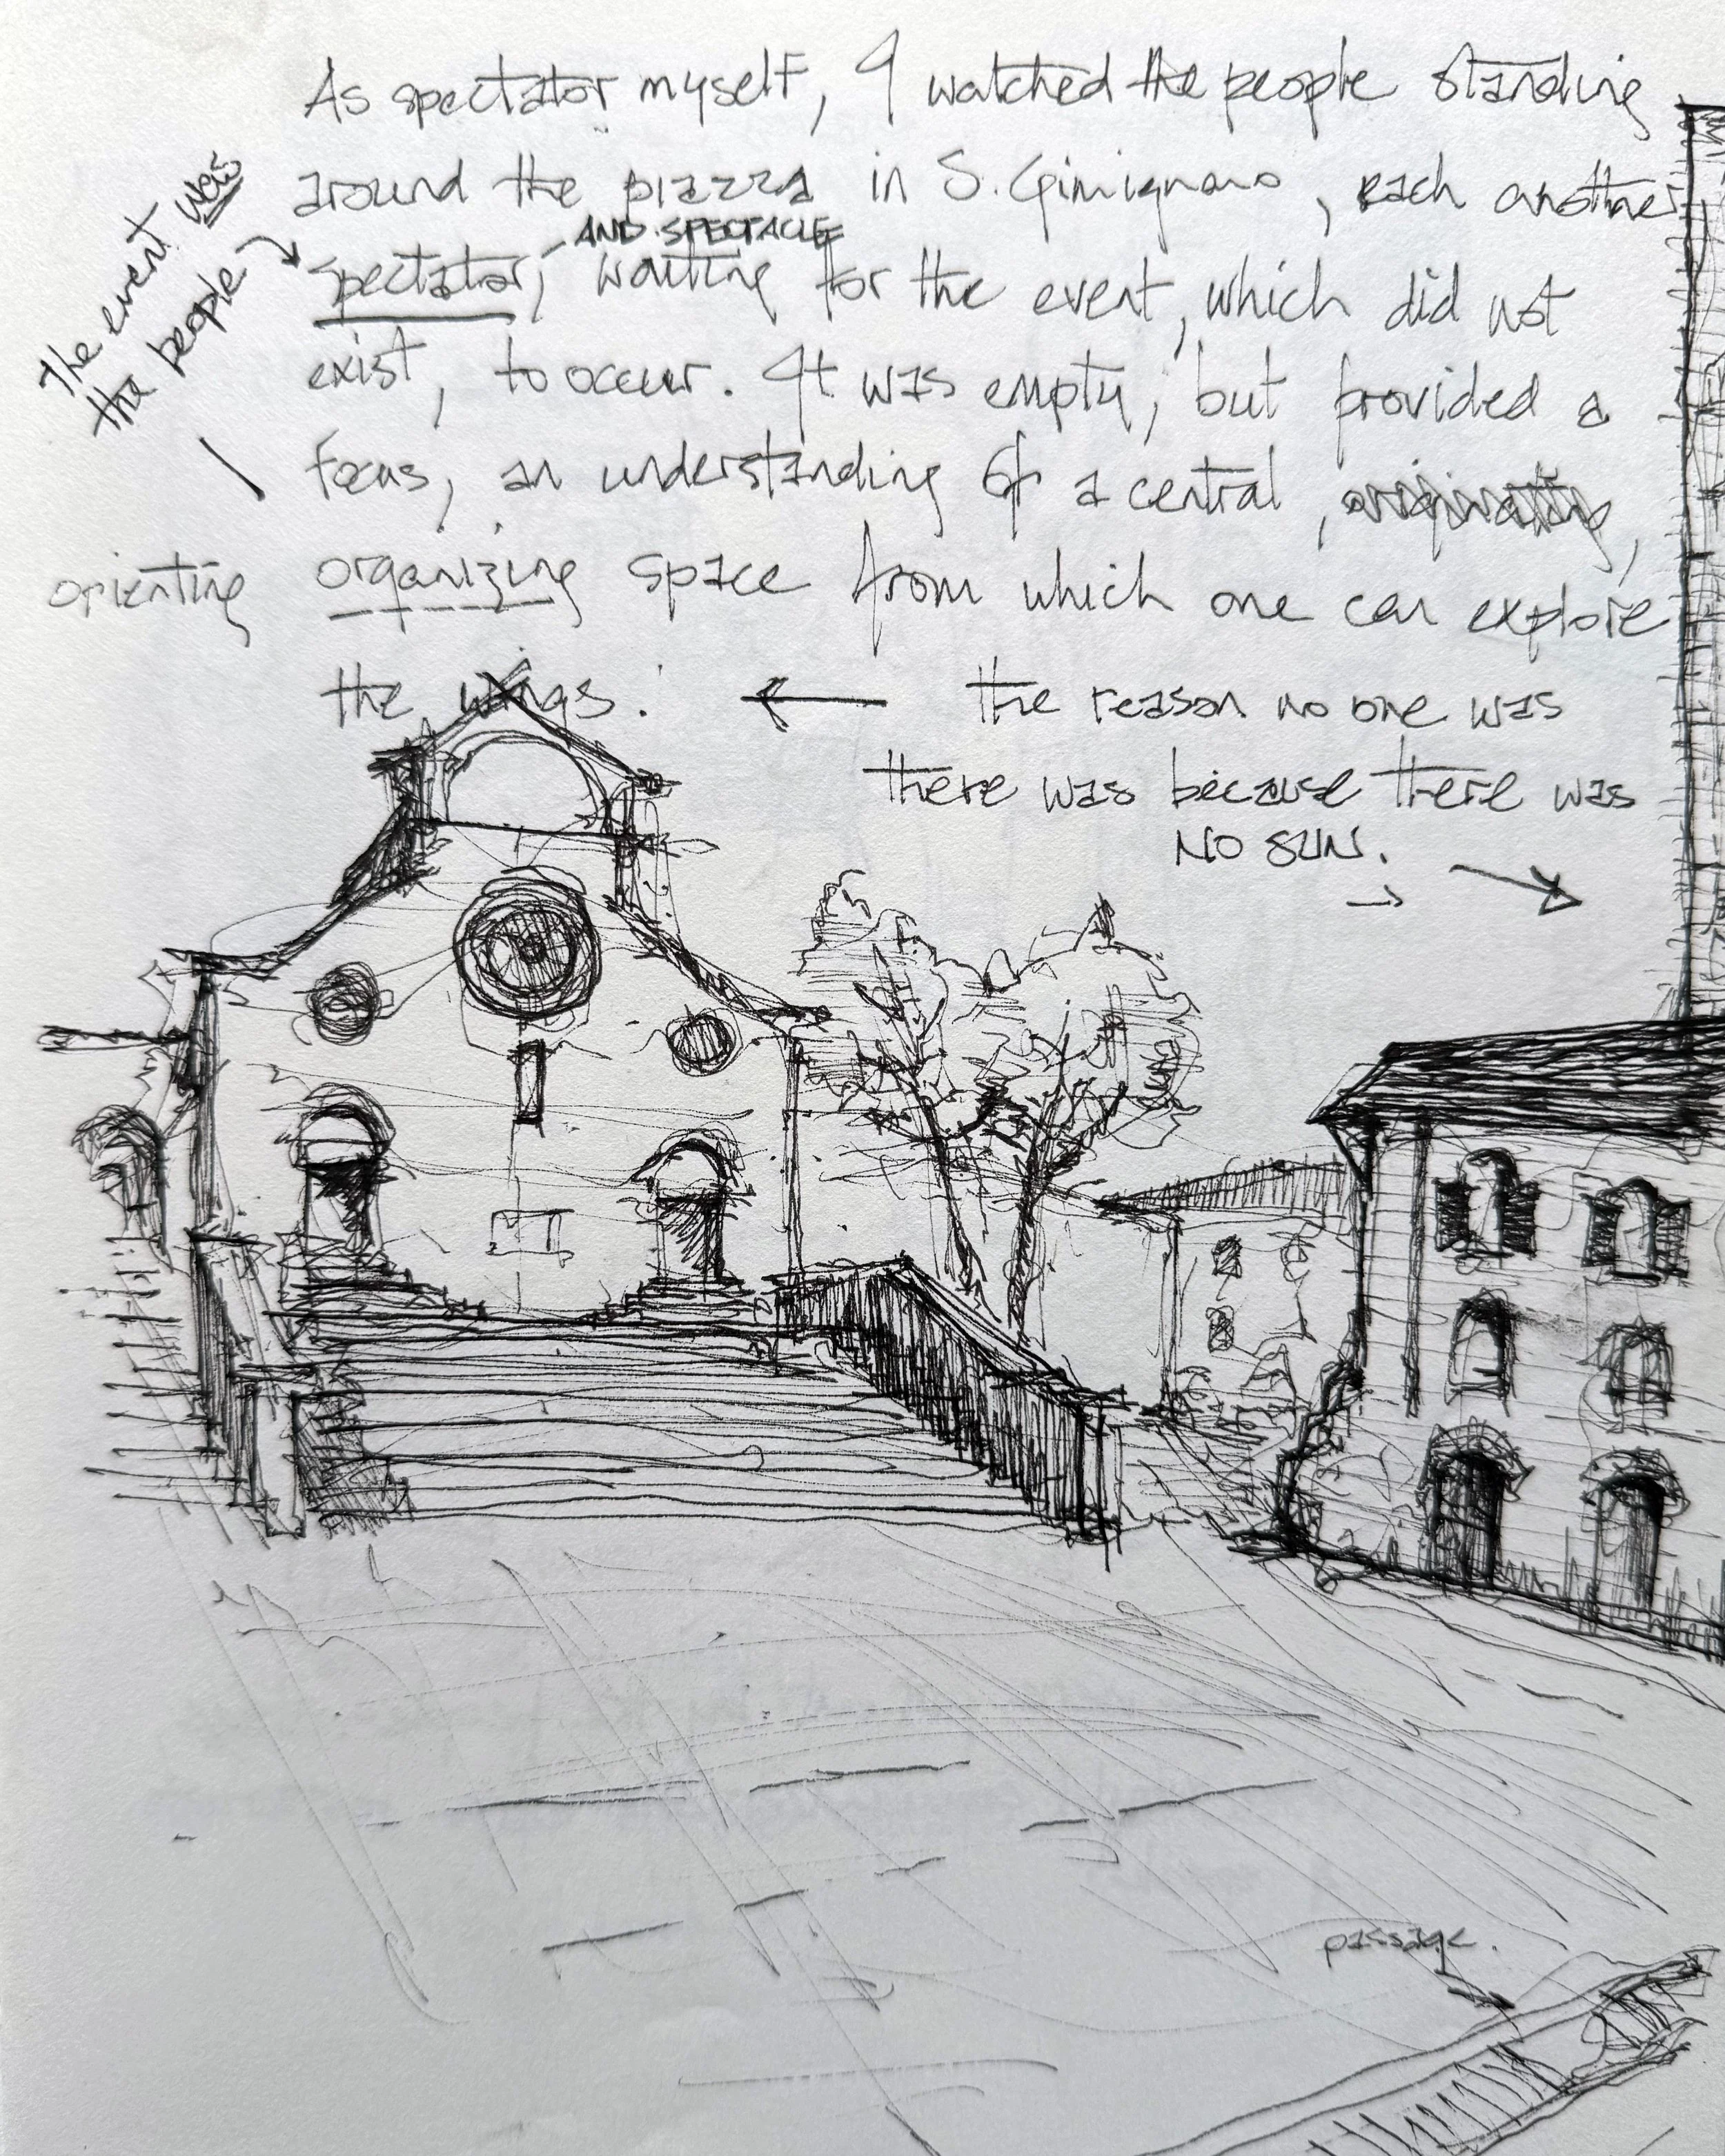 As spectator myself, I watched the people standing
around the piazza in S. Gimignano, each another
AND SPECTACLE
spectator, waiting for the event, which did not
exist, to occur. It was empty, but provided a
focus, an understanding of a central, originating,
organizing space from which one can explore
the wings.
The event was
the people
orienting
← the reason no one was
there was because there was
NO SUN.
passage.